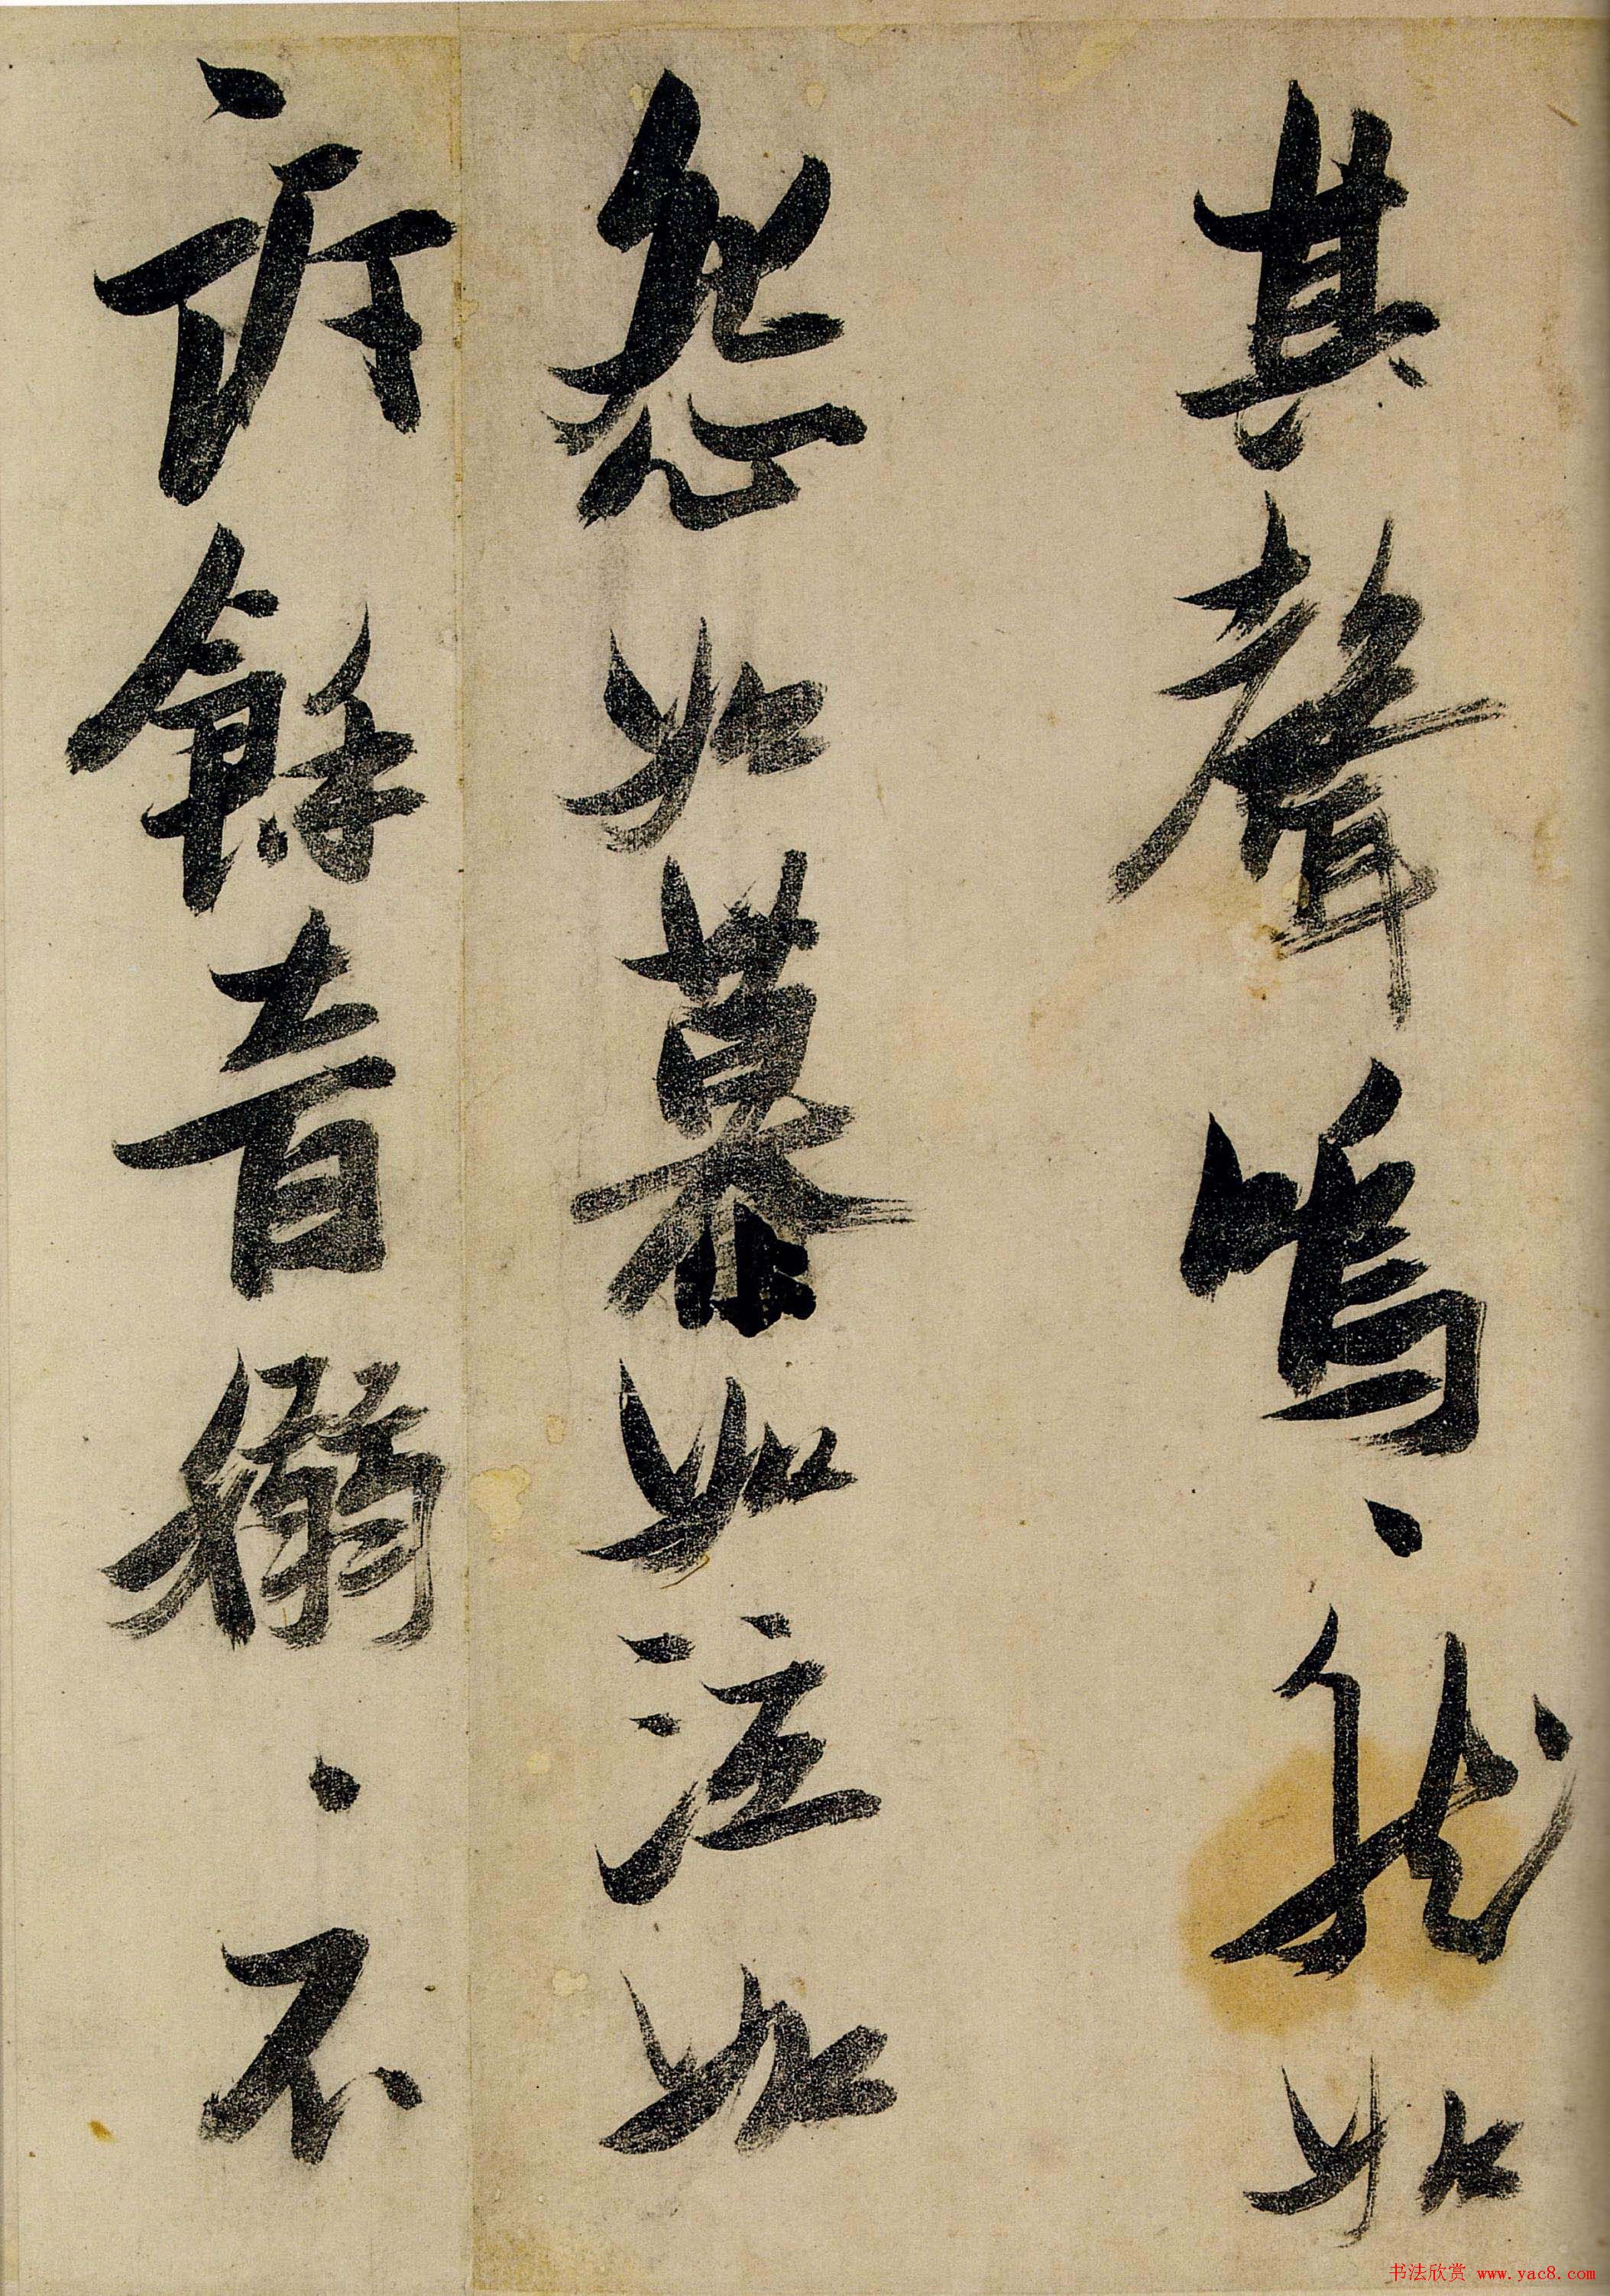 其聲嗚、然如
怨如慕如泣如
訴餘音嫋、不
书法欣赏 www.yac8.com